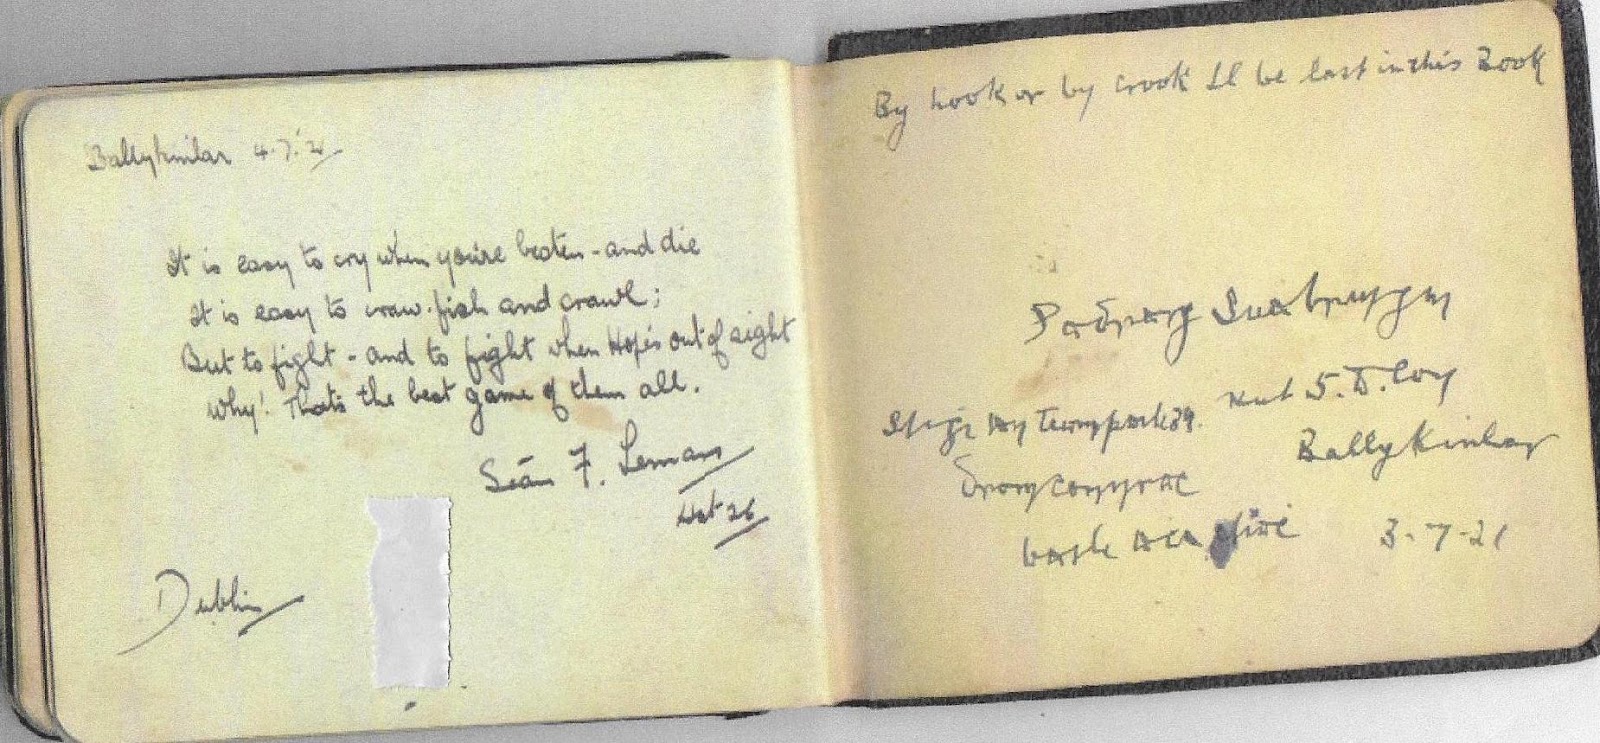 Ballykinlar 4.7.21
It is easy to cry when you're beaten - and die
It is easy to craw-fish and crawl;
But to fight - and to fight when Hope's out of sight
Why! That's the best game of them all.
Seán F. Lemass
Hut 26
Dublin
By hook or by crook I'll be last in this Book
Hut 5. D. Coy
Ballykinlar
3-7-21